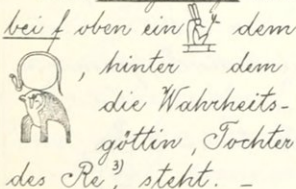 bei f oben ein dem
, hinter dem
die Wahrheits-
göttin, Tochter
des Re, ³⁾ steht. —